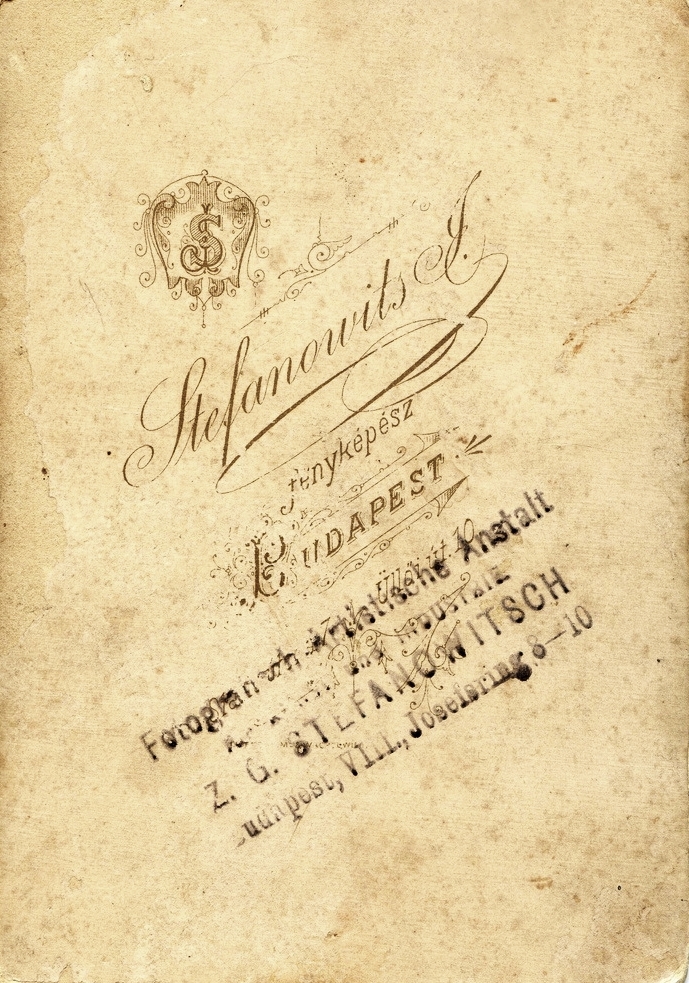 JS
Stefanowits J.
fényképész
BUDAPEST
Üllői út 10
Artistische Anstalt
und Industrie
Z. G. STEFANOWITSCH
Budapest, VIII., Josefsring 8—10